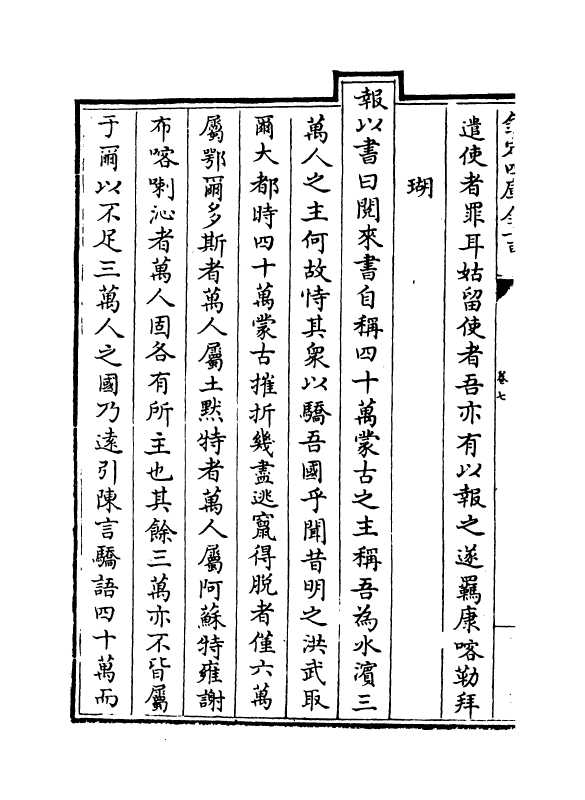 欽定四庫全書
卷七
遣使者罪耳姑留使者吾亦有以報之遂羈康喀勒拜
瑚
報以書曰閱來書自稱四十萬蒙古之主稱吾為水濱三
萬人之主何故恃其衆以驕吾國乎聞昔明之洪武取
爾大都時四十萬蒙古摧折幾盡逃竄得脫者僅六萬
屬鄂爾多斯者萬人屬土默特者萬人屬阿蘇特雍謝
布喀喇沁者萬人固各有所主也其餘三萬亦不皆屬
于爾以不足三萬人之國乃遠引陳言驕語四十萬而